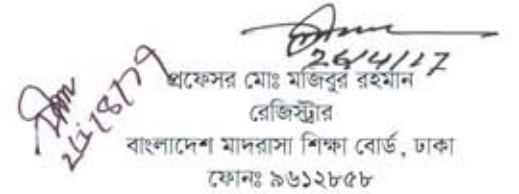 26/4/17
প্রফেসর মোঃ মজিবুর রহমান
রেজিস্ট্রার
বাংলাদেশ মাদরাসা শিক্ষা বোর্ড, ঢাকা
ফোনঃ ৯৬১২৮৫৮